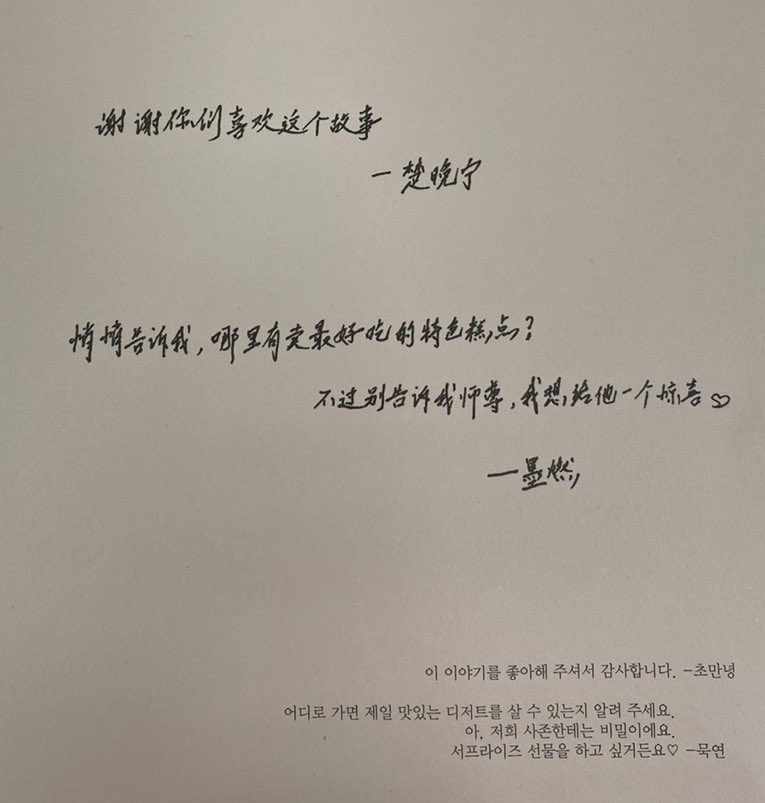 谢谢你们喜欢这个故事
—楚晚宁
悄悄告诉我，哪里有卖最好吃的特色糕点？
不过别告诉我师尊，我想给他一个惊喜♡
—墨燃
이 이야기를 좋아해 주셔서 감사합니다. -초만녕
어디로 가면 제일 맛있는 디저트를 살 수 있는지 알려 주세요.
아, 저희 사존한테는 비밀이에요.
서프라이즈 선물을 하고 싶거든요♡ -묵연